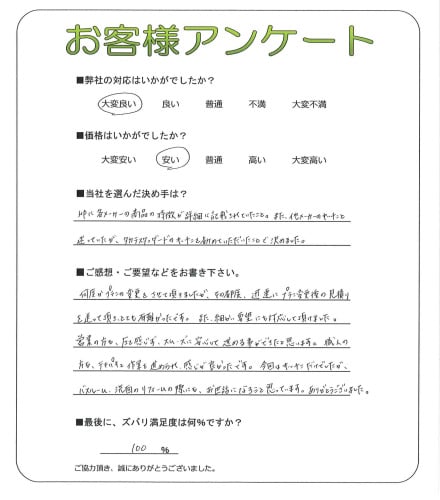 お客様アンケート
■弊社の対応はいかがでしたか？
大変良い 良い 普通 不満 大変不満
■価格はいかがでしたか？
大変安い 安い 普通 高い 大変高い
■当社を選んだ決め手は？
HPに各メーカーの商品の特徴が詳細に記載されていたこと。また、他メーカーのキッチンと
迷っていたが、タカラスタンダードのキッチンを勧めていただいたことで決めました。
■ご感想・ご要望などをお書き下さい。
何度かプランの変更をさせて頂きましたが、その都度、迅速にプラン変更後の見積り
を送って頂き、とても有難かったです。また、細かい要望にも対応して頂けました。
営業の方も、圧を感じず、スムーズに安心して進める事ができたと思います。職人の
方も、テキパキと作業を進められ、感じが良かったです。今回はキッチンだけでしたが、
バスルーム、洗面のリフォームの際にも、お世話になろうと思っています。ありがとうございました。
■最後に、ズバリ満足度は何%ですか？
100 %
ご協力頂き、誠にありがとうございました。